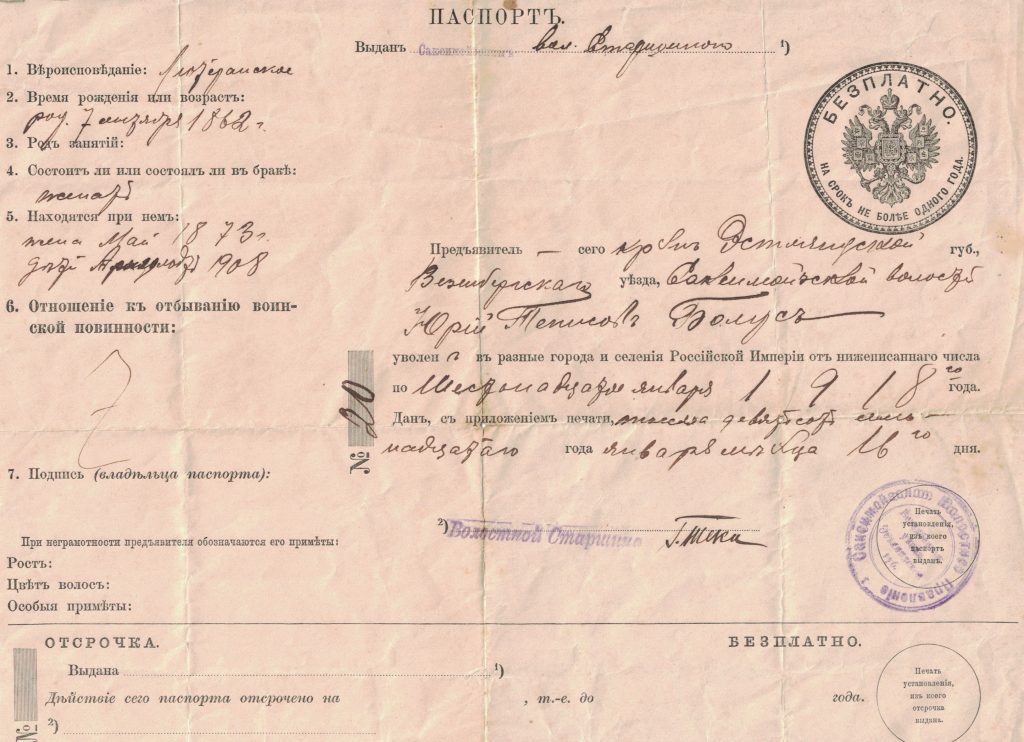 ПАСПОРТЪ.
Выданъ Саксимойзскимъ вол. Старшиною ¹)
1. Вѣроисповѣданіе: Лютеранское
2. Время рожденія или возрастъ:
род. 7 1862 г.
3. Родъ занятій:
4. Состоитъ ли или состоялъ ли въ бракѣ:
женатъ
5. Находятся при немъ:
жена Май 1873 г.
1908
6. Отношеніе къ отбыванію воин-
ской повинности:
7. Подпись (владѣльца паспорта):
При неграмотности предъявителя обозначаются его примѣты:
Ростъ:
Цвѣтъ волосъ:
Особыя примѣты:
БЕЗПЛАТНО.
НА СРОКЪ НЕ БОЛѢЕ ОДНОГО ГОДА.
Предъявитель — сего кр-нъ Эстляндской губ.,
Везенбергскаго уѣзда, Саксимойзской волости
Юрій Болусъ
уволенъ въ разные города и селенія Россійской Имперіи отъ нижеписаннаго числа
по Шестнадцатое января 1918 го года.
Данъ, съ приложеніемъ печати, тысяча девятьсотъ семь-
надцатаго года января мѣсяца 16 го дня.
№ 20
²) Волостной Старшина
Печать
установленія,
изъ коего
паспортъ
выданъ.
ОТСРОЧКА. БЕЗПЛАТНО.
Выдана ¹)
Дѣйствіе сего паспорта отсрочено на , т.-е. до года.
№ ²)
Печать
установленія,
изъ коего
отсрочка
выдана.